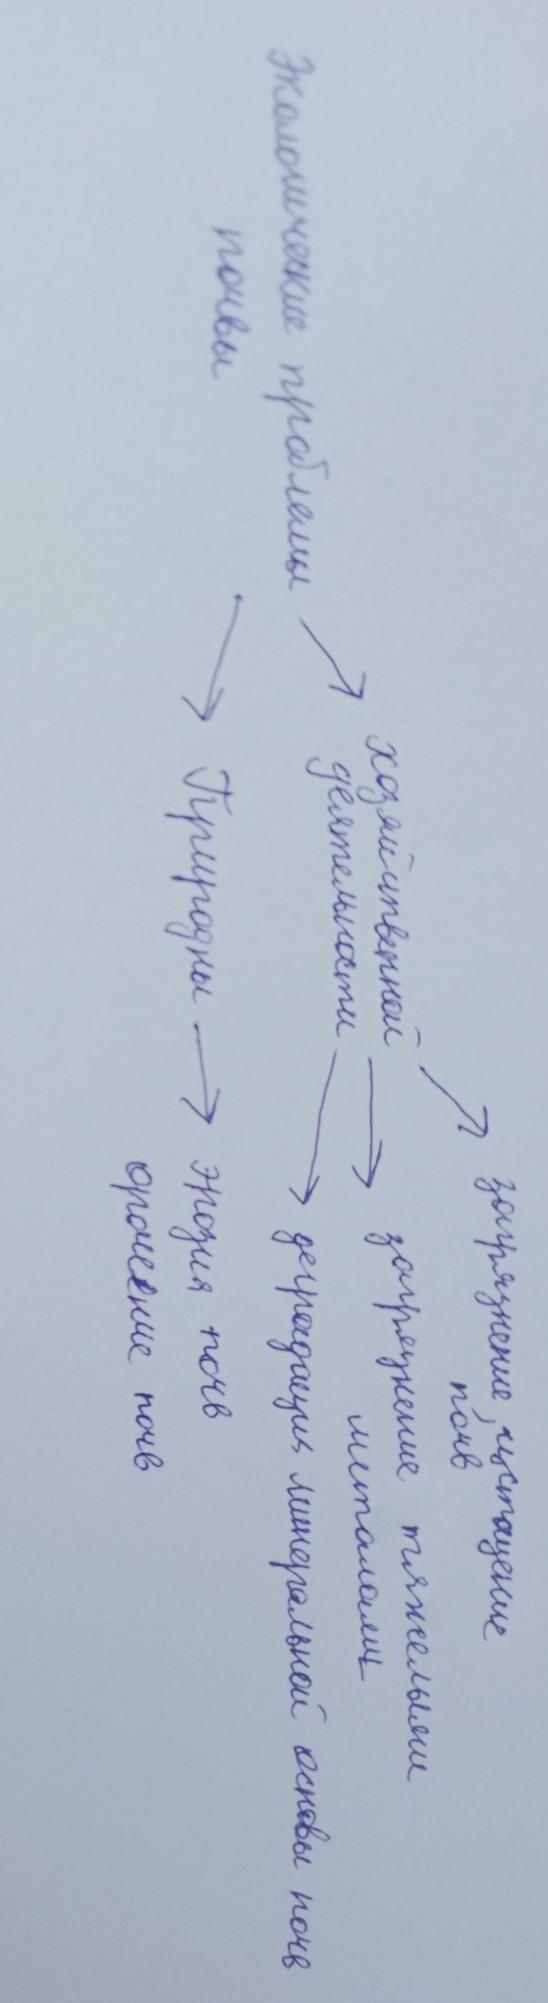 Экологические проблемы
почвы
хозяйственной
деятельности
Природны
загрязнение, истощение
почв
загрязнение тяжелыми
металами
деградация минеральной основы почв
эрозия почв
орошение почв